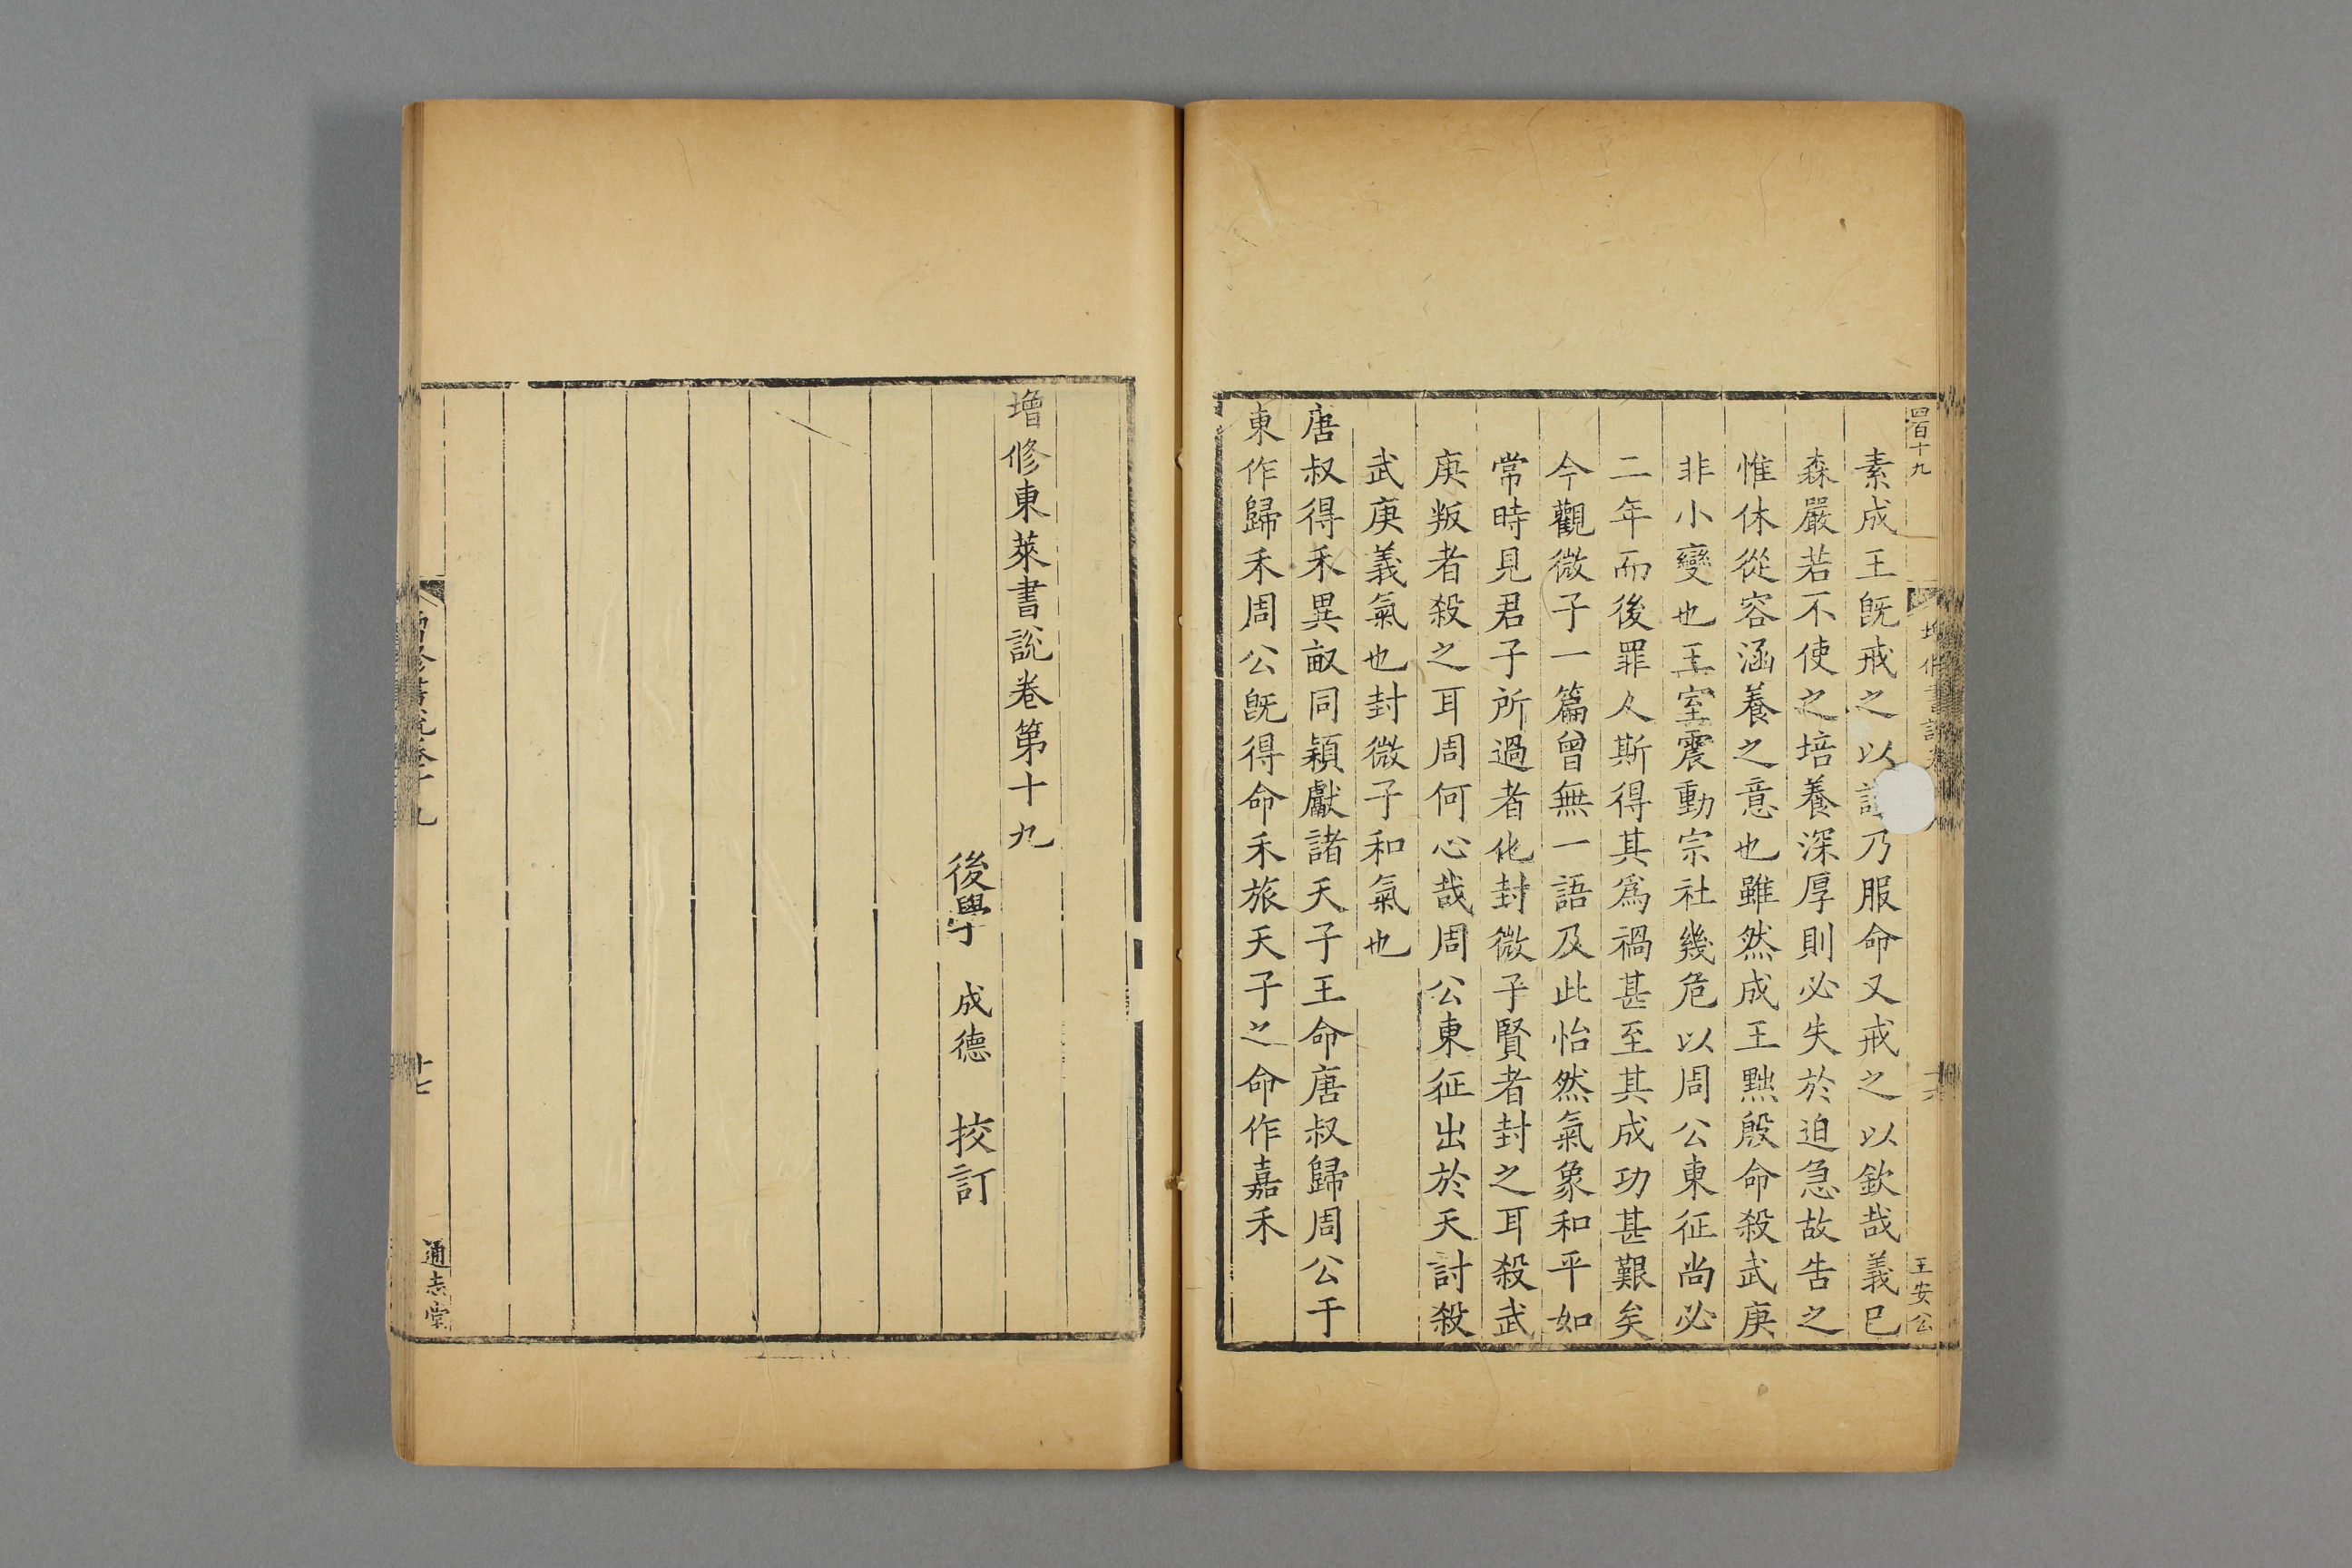 四百十九
王安公
素成王旣戒之以謹乃服命又戒之以欽哉義已
森嚴若不使之培養深厚則必失於迫急故告之
惟休從容涵養之意也雖然成王黜殷命殺武庚
非小變也王室震動宗社幾危以周公東征尚必
二年而後罪人斯得其爲禍甚至其成功甚艱矣
今觀微子一篇曾無一語及此怡然氣象和平如
常時見君子所過者化封微子賢者封之耳殺武
庚叛者殺之耳周何心哉周公東征出於天討殺
武庚義氣也封微子和氣也
唐叔得禾異畝同穎獻諸天子王命唐叔歸周公于
東作歸禾周公旣得命禾旅天子之命作嘉禾
增修東萊書說卷第十九
後學 成德 挍訂
增修書說卷十九
十七
通志堂